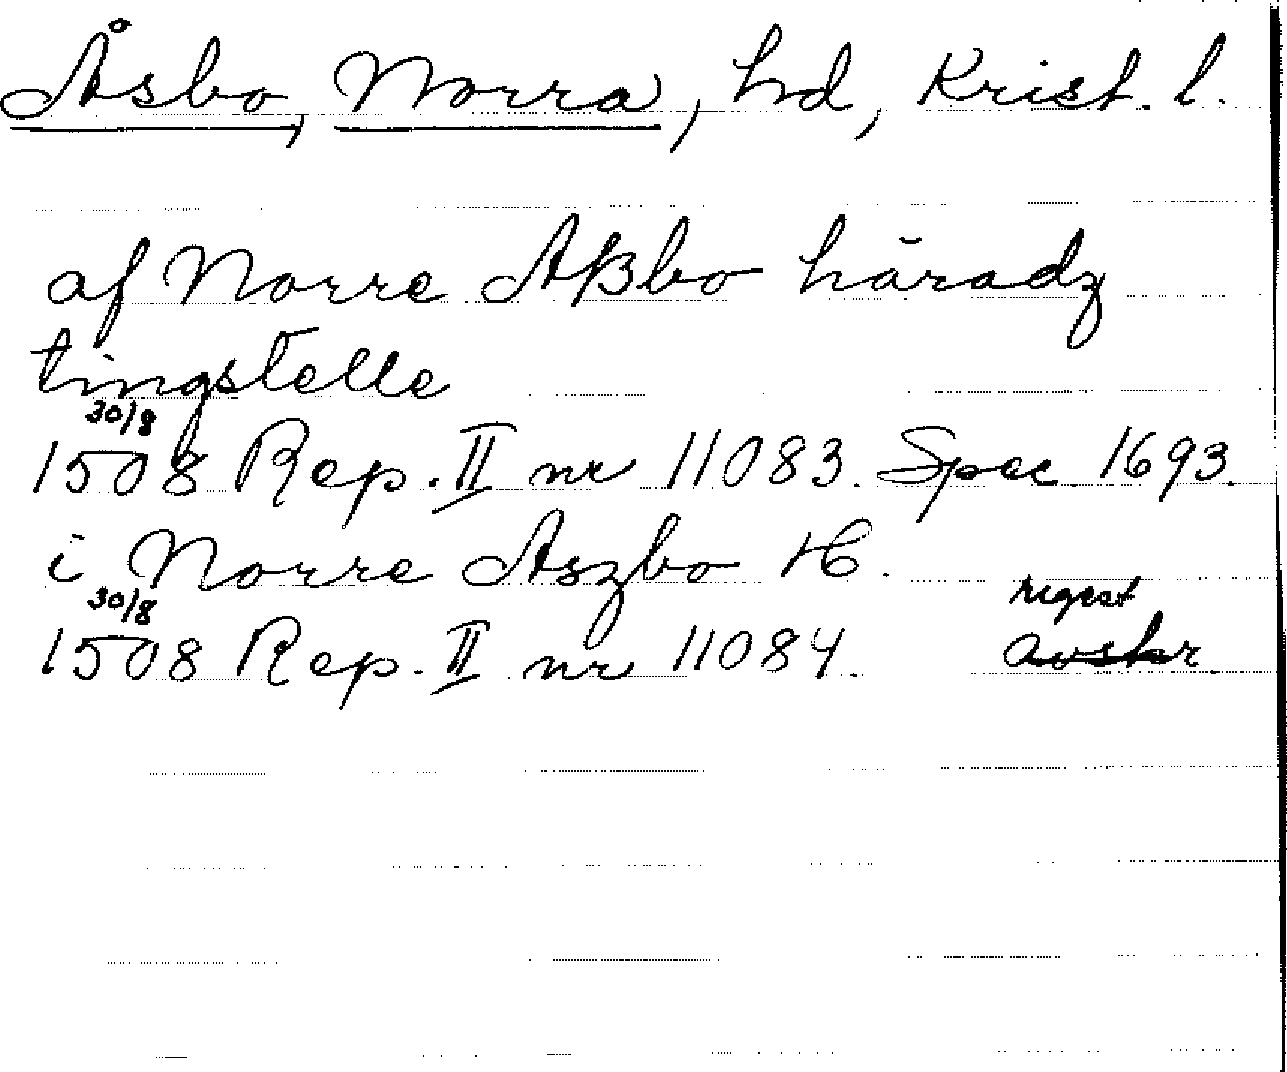 Åsbo, Norra, hd, Krist. l.
af Norre Aßbo häradz
tingstelle
30/8
1508 Rep. II nr 11083. Spec 1693.
i Norre Aszbo H.
30/8 regest
1508 Rep. II nr 11084. avskr.